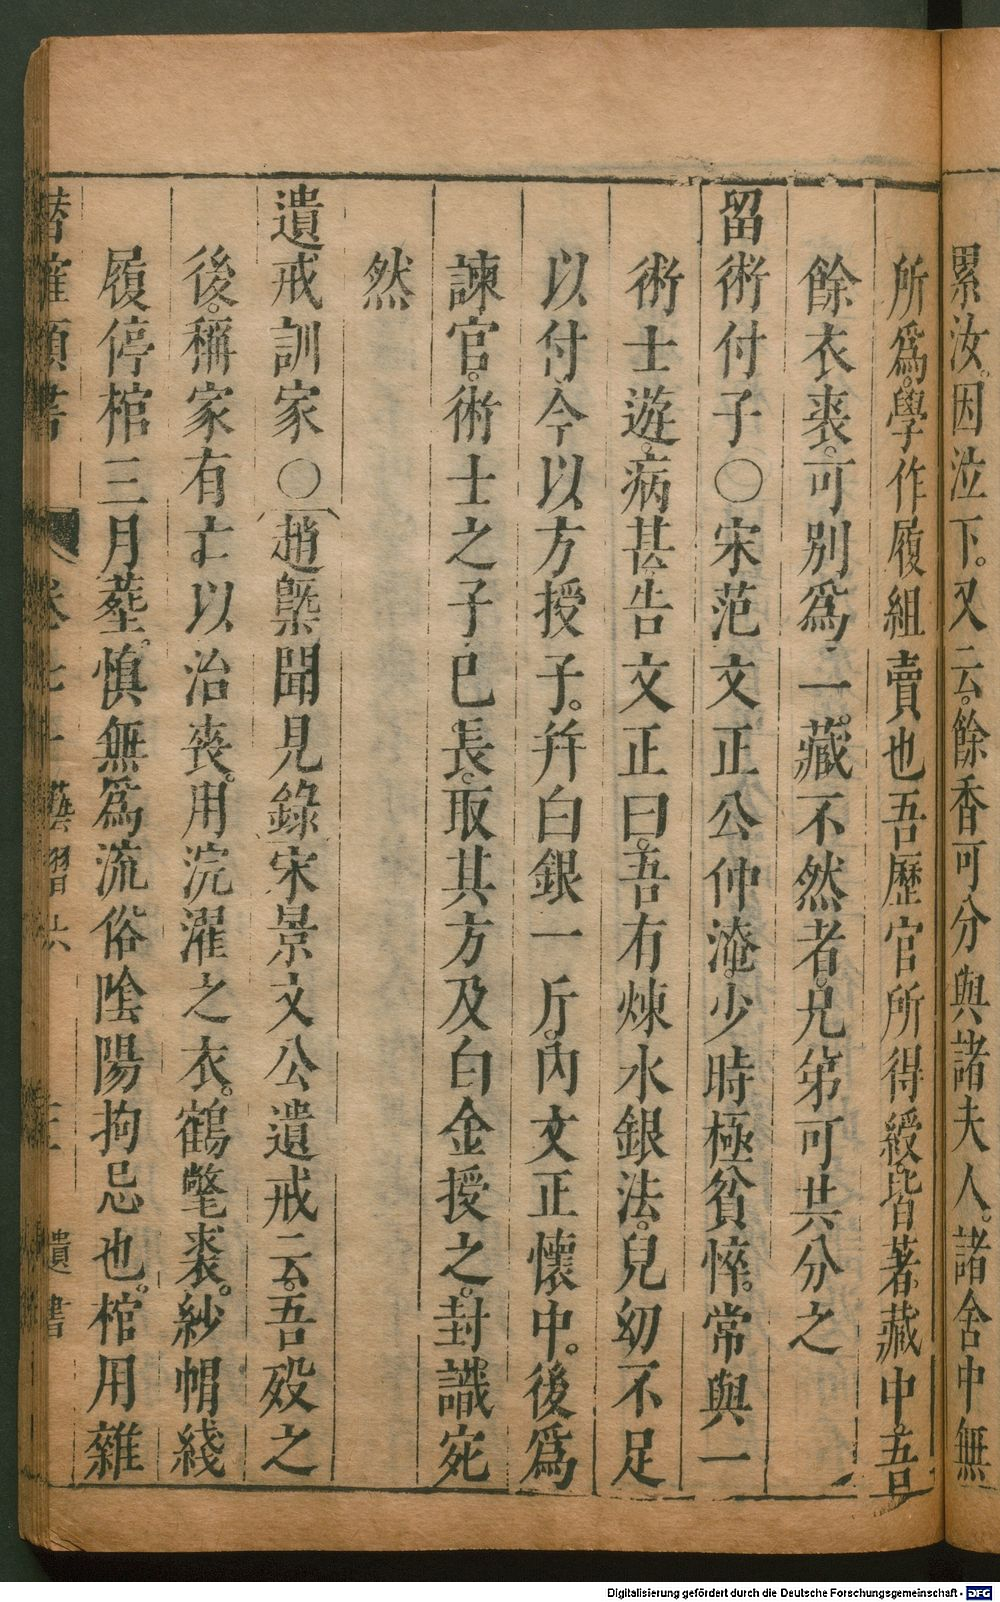 累汝。因泣下。又云。餘香可分與諸夫人。諸舍中無
所爲。學作履組賣也吾歷官所得綬。皆著藏中。吾
餘衣裘。可別爲一。藏不然者。兄弟可共分之
留術付子〇宋范文正公仲淹。少時極貧悴。常與一
術士遊。病甚告文正曰。吾有煉水銀法。兒幼不足
以付今以方授子。幷白銀一斤。內文正懷中。後爲
諫官。術士之子已長。取其方及白金授之。封識宛
然
遺戒訓家〇趙槩聞見錄宋景文公遺戒云。吾歿之
後。稱家有亡以治喪。用浣濯之衣。鶴氅裘。紗帽綫
履停棺三月塟。愼無爲流俗陰陽拘忌也。棺用雜
卷 藝習 遺書
Digitalisierung gefördert durch die Deutsche Forschungsgemeinschaft - DFG